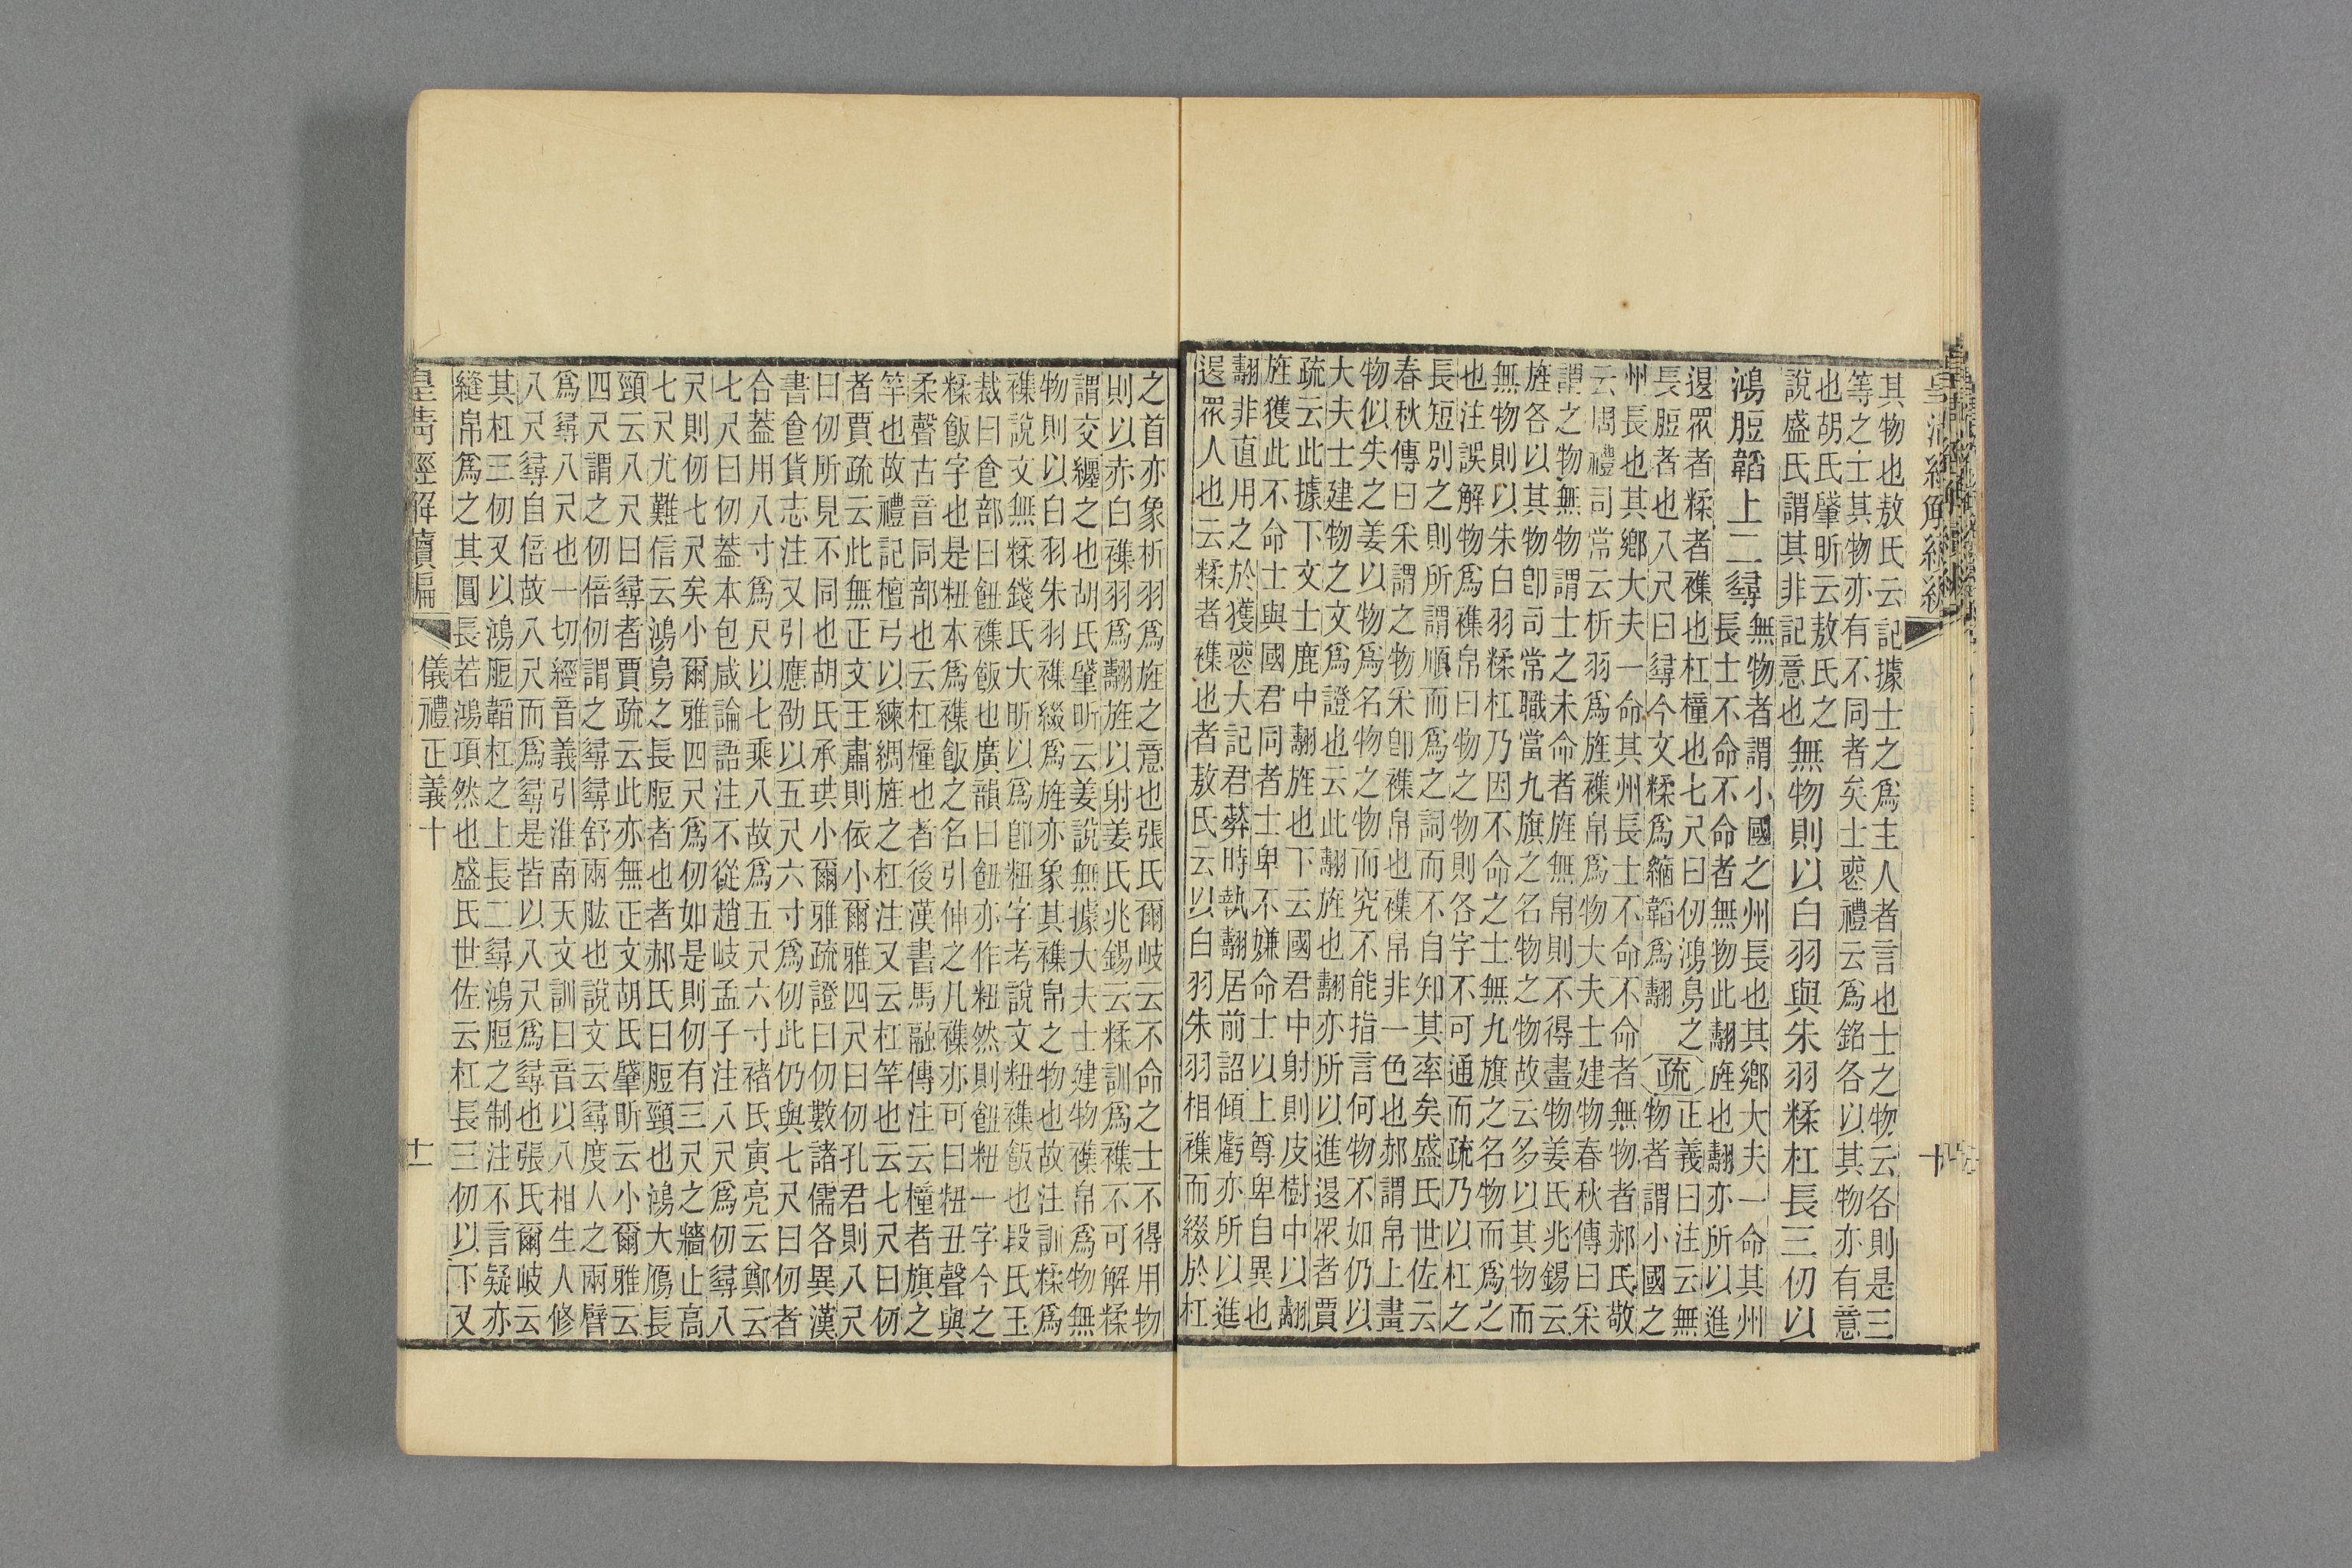 其物也敖氏云記據士之爲主人者言也士之物云各則是三
等之士其物亦有不同者矣士喪禮云爲銘各以其物亦有意
也胡氏肇昕云敖氏之
說盛氏謂其非記意也
無物則以白羽與朱羽糅杠長三仞以
鴻脰韜上二尋
無物者謂小國之州長也其鄉大夫一命其州
長士不命不命者無物此翿旌也翿亦所以進
退眾者糅者襍也杠橦也七尺曰仞鴻鳥之
長脰者也八尺曰尋今文糅爲縮韜爲翿
疏
正義曰注云無
物者謂小國之
州長也其鄉大夫一命其州長士不命不命者無物者郝氏敬
云周禮司常云析羽爲旌襍帛爲物大夫士建物春秋傳曰采
謂之物無物謂士之未命者旌無帛則不得畫物姜氏兆錫云
旌各以其物卽司常職當九旗之名物之物故云多以其物而
無物則以朱白羽糅杠乃因不命之士無九旗之名物而爲之
也注誤解物爲襍帛曰物之物則各字不可通而疏乃以杠之
長短別之則所謂順而爲之詞而不自知其率矣盛氏世佐云
春秋傳曰采謂之物采卽襍帛也襍帛非一色也郝謂帛上畫
物似失之姜以物爲名物之物而究不能指言何物不如仍以
大夫士建物之文爲證也云此翿旌也翿亦所以進退眾者賈
疏云此據下文士鹿中翿旌也下云國君中射則皮樹中以翿
旌獲此不命士與國君同者士卑不嫌命士以上尊卑自異也
翿非直用之於獲喪大記君葬時執翿居前詔傾虧亦所以進
退眾人也云糅者襍也者敖氏云以白羽朱羽相襍而綴於杠
之首亦象析羽爲旌之意也張氏爾岐云不命之士不得用物
則以赤白襍羽爲翿旌以射姜氏兆錫云糅訓爲襍不可解糅
謂交纒之也胡氏肇昕云姜說無據大夫士建物襍帛爲物無
物則以白羽朱羽襍綴爲旌亦象其襍帛之物也故注訓糅爲
襍說文無糅錢氏大昕以爲卽粈字考說文粈襍飯也段氏玉
裁曰飠部曰飿襍飯也廣韻曰飿亦作粈然則飿粈一字今之
糅飯字也是粈本爲襍飯之名引伸之凡襍亦可曰粈丑聲與
柔聲古音同部也云杠橦也者後漢書馬融傳注云橦者旗之
竿也故禮記檀弓以練綢旌之杠注又云杠竿也云七尺曰仞
者賈疏云此無正文王肅則依小爾雅四尺曰仞孔君則八尺
曰仞所見不同也胡氏承珙小爾雅疏證曰仞數諸儒各異漢
書食貨志注又引應劭以五尺六寸爲仞此仍與七尺曰仞者
合蓋用八寸爲尺以七乘八故爲五尺六寸褚氏寅亮云鄭云
七尺曰仞蓋本包咸論語注不從趙岐孟子注八尺爲仞尋八
尺則仞七尺矣小爾雅四尺爲仞如是則仞有三尺之牆止高
七尺尤難信云鴻鳥之長脰者也者郝氏曰脰頸也鴻大鴈長
頸云八尺曰尋者賈疏云此亦無正文胡氏肇昕云小爾雅云
四尺謂之仞倍仞謂之尋尋舒兩肱也說文云尋度人之兩臂
爲尋八尺也一切經音義引淮南天文訓曰音以八相生人修
八尺尋自倍故八尺而爲尋是皆以八尺爲尋也張氏爾岐云
其杠三仞又以鴻脰韜杠之上長二尋鴻脰之制注不言疑亦
縫帛爲之其圓長若鴻項然也盛氏世佐云杠長三仞以下又
皇淸經解續編
儀禮正義十
十一